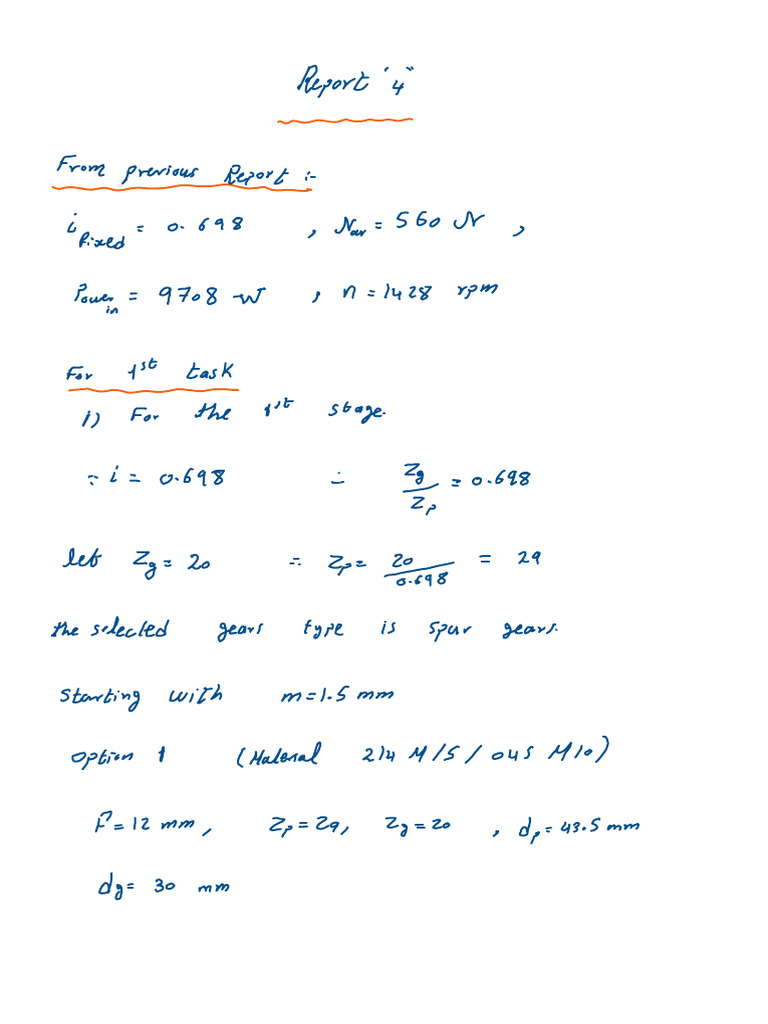 Report "4"
From previous Report :-
i fixed = 0.698 , Nav = 560 N ,
Power in = 9708 W , n = 1428 rpm
For 1st task
1) For the 1st stage.
∵ i = 0.698 ∴ Zg / Zp = 0.698
let Zg = 20 ∴ Zp = 20 / 0.698 = 29
the selected gears type is spur gears.
Starting with m = 1.5 mm
option 1 (Material 214 M15 / 045 M10)
F = 12 mm, Zp = 29, Zg = 20 , dp = 43.5 mm
dg = 30 mm